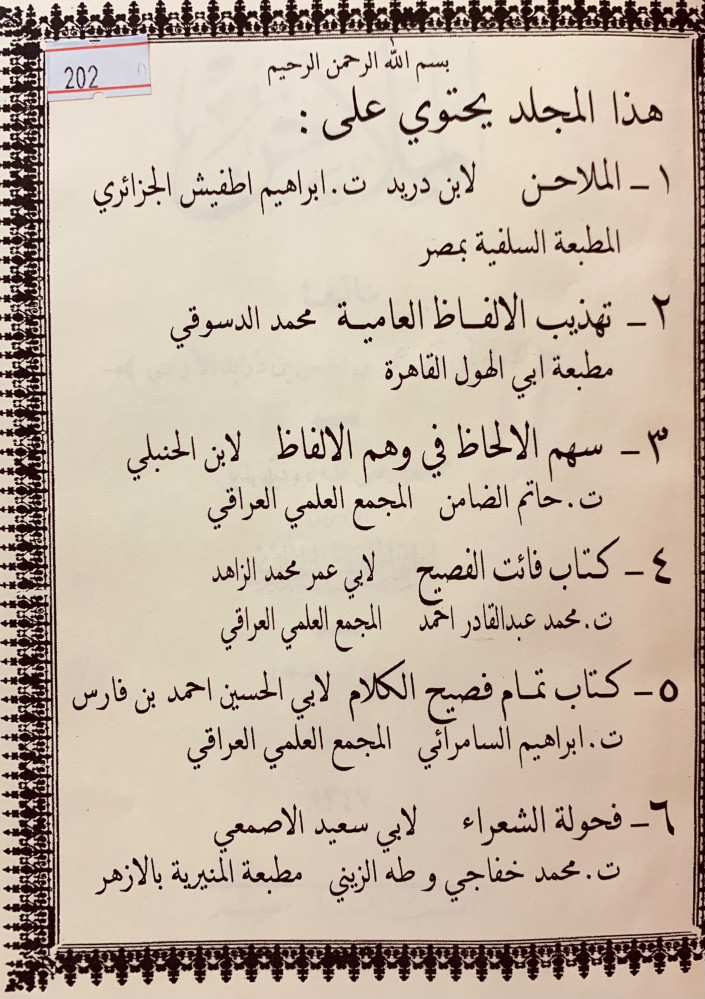 202
بسم الله الرحمن الرحيم
هذا المجلد يحتوي على :
١ ـ الملاحن لابن دريد ت . ابراهيم اطفيش الجزائري
المطبعة السلفية بمصر
٢ ـ تهذيب الالفاظ العامية محمد الدسوقي
مطبعة ابي الهول القاهرة
٣ ـ سهم الالحاظ في وهم الالفاظ لابن الحنبلي
ت . حاتم الضامن المجمع العلمي العراقي
٤ ـ كتاب فائت الفصيح لابي عمر محمد الزاهد
ت . محمد عبدالقادر احمد المجمع العلمي العراقي
٥ ـ كتاب تمام فصيح الكلام لابي الحسين احمد بن فارس
ت . ابراهيم السامرائي المجمع العلمي العراقي
٦ ـ فحولة الشعراء لابي سعيد الاصمعي
ت . محمد خفاجي و طه الزيني مطبعة المنيرية بالازهر